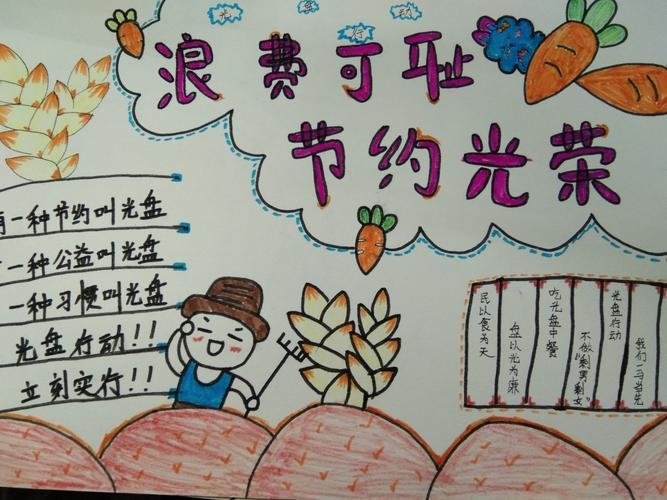 光盘行动
浪费可耻
节约光荣
有一种节约叫光盘
一种公益叫光盘
一种习惯叫光盘
光盘行动!!
立刻实行!!
民以食为天
盘以光为廉
吃光盘中餐
不做“剩男剩女”
光盘行动
我们一马当先